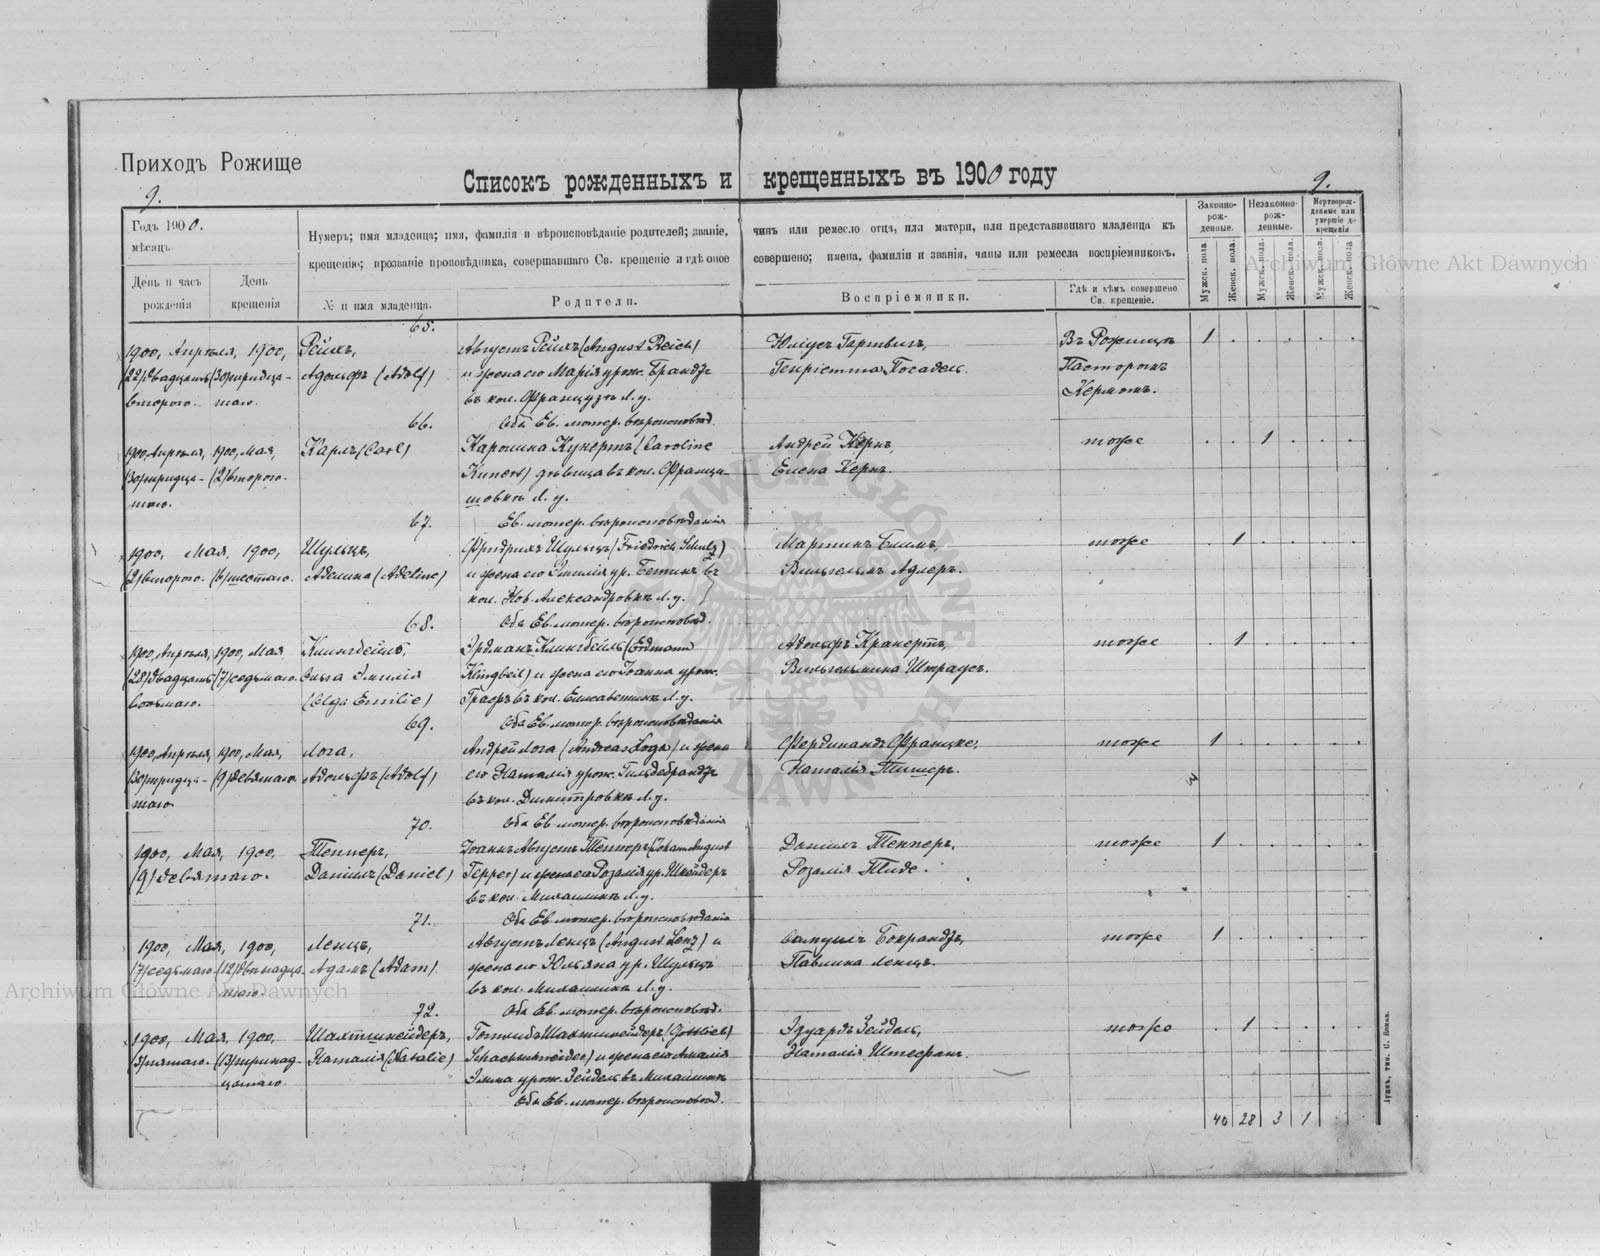 Приходъ Рожище
Списокъ рожденныхъ и крещенныхъ въ 1900 году
9.
9.
Годъ 1900.
мѣсяцъ
День и часъ рожденія
День крещенія
Нумеръ; имя младенца; имя, фамилія и вѣроисповѣданіе родителей; званіе, чинъ или ремесло отца, или матери, или представившаго младенца къ
крещенію; прозваніе проповѣдника, совершавшаго Св. крещеніе и гдѣ оное совершено; имена, фамиліи и званія, чины или ремесла воспріемниковъ.
№ и имя младенца.
Родители.
Воспріемники.
Гдѣ и кѣмъ совершено Св. крещеніе.
Законно-рож-денные.
Незаконно-рож-денные.
Мертворож-денные или умершіе до крещенія
Мужск. пола.
Женск. пола.
Мужск. пола.
Женск. пола.
Мужск. пола.
Женск. пола
Archiwum Główne Akt Dawnych
65.
1900, Апрѣля, 1900, Рейхъ, Августъ Рейхъ (August Reich) Юліусъ Гертвигъ, Въ Рожищѣ 1
(22) двадцать (30) тридца- Адольфъ (Adolf) и жена его Марія урож. Брандъ Генріетта Посадель. Пасторомъ
второго. таго. въ кол. Французъ Л. у. Керномъ.
66. Оба Ев. лютер. вѣроисповѣд.
1900, Апрѣля, 1900, Мая, Карлъ (Carl) Каролина Кунертъ (Caroline Андрей Кернъ, тоже 1
(30) тридца- (2) второго. Kunert) дѣвица въ кол. Франци- Елена Кернъ.
таго. шовкѣ Л. у.
67. Ев. лютер. вѣроисповѣданія
1900, Мая, 1900, Шульцъ, Фридрихъ Шульцъ (Friedrich Schulz) Мартинъ Блимъ, тоже 1
(2) второго. (6) шестаго. Аделина (Adeline) и жена его Эмилія ур. Бетинъ въ Вильгельмъ Адлеръ.
кол. Нов. Александровкѣ Л. у.
68. Оба Ев. лютер. вѣроисповѣд.
1900, Апрѣля, 1900, Мая Клингбейлъ, Эрдманъ Клингбейль (Erdmann Адольфъ Кранертъ, тоже 1
(28) двадцать (7) седьмаго. Ольга Эмилія Klingbeil) и жена его Іоанна урож. Вильгельмина Штраусъ.
восьмаго. (Olga Emilie) Графъ въ кол. Елисаветинъ Л. у.
69. Оба Ев. лютер. вѣроисповѣданія
1900, Апрѣля, 1900, Мая, Лога, Андрей Лога (Andreas Loga) и жена Фердинандъ Францке, тоже 1
(30) тридца- (9) девятаго. Адольфъ (Adolf) его Наталія урож. Гильдебрандъ Наталія Тишеръ.
таго. въ кол. Димитровкѣ Л. у.
70. Оба Ев. лютер. вѣроисповѣданія
1900, Мая, 1900, Тепперъ, Іоаннъ Августъ Тепперъ (Johann August Даніилъ Тепперъ, тоже 1
(9) девятаго. Даніилъ (Daniel) Tepper) и жена его Розалія ур. Шнейдеръ Розалія Тиде.
въ кол. Михаилинъ Л. у.
71. Оба Ев. лютер. вѣроисповѣданія
1900, Мая, 1900, Ленцъ, Августъ Ленцъ (August Lenz) и Самуилъ Бонрандъ, тоже 1
(7) седьмаго. (12) двѣнадца- Адамъ (Adam) жена его Юліяна ур. Шульцъ Павлина Ленцъ.
таго. въ кол. Михаилинъ Л. у.
72. Оба Ев. лютер. вѣроисповѣд.
1900, Мая, 1900, Шахтшнейдеръ, Готлибъ Шахтшнейдеръ (Gottlieb) Эдуардъ Зейдель, тоже 1
(5) пятаго. (13) тринад- Наталія (Natalie) Schachtschneider) и жена его Амалія Наталія Штефанъ.
цатаго. Эмма урож. Зейдель въ Михаилинъ
Оба Ев. лютер. вѣроисповѣд.
40 28 3 1
Луцкъ, тип. С. Бонка.
Archiwum Główne Akt Dawnych
ARCHIWUM GŁÓWNE AKT DAWNYCH